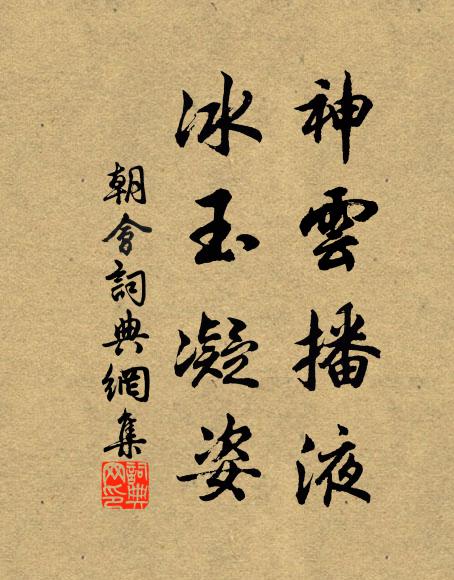 神雲播液
冰玉凝姿
朝會詞典網集
詞典網印